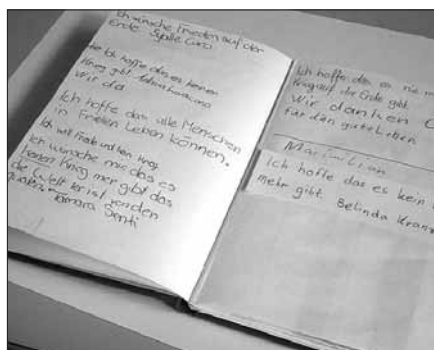 Ich wünsche Frieden auf der
Erde Sybille
Ich hoffe das es keinen
Krieg gibt.
Wir da
Ich hoffe das alle Menschen
in Frieten Leben können.
Ich will Friede und kein Krieg
Ich wünsche mir das es
keinen Krieg mer gibt das
die Welt
Tamara Senti
Ich hoffe das es nie m
Krieg auf der Erde gibt
Wir danken
für das gute Leben
Maximilian
Ich hoffe das es kein
mehr gibt. Belinda